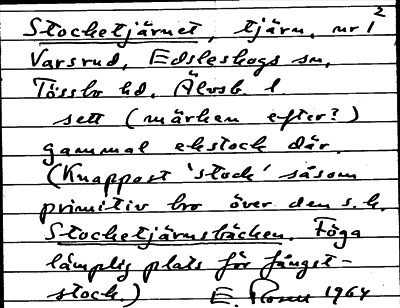 Stocketjärnet, tjärn, nr 1²
Varsrud, Edsleskogs sn,
Tössbo hd. Älvsb. l.
sett (märken efter?)
gammal ekstock där.
(Knappast 'stock' såsom
primitiv bro över den s.k.
Stocketjärnsbäcken. Föga
lämplig plats för fångst-
stock.) E. Rosen 1964